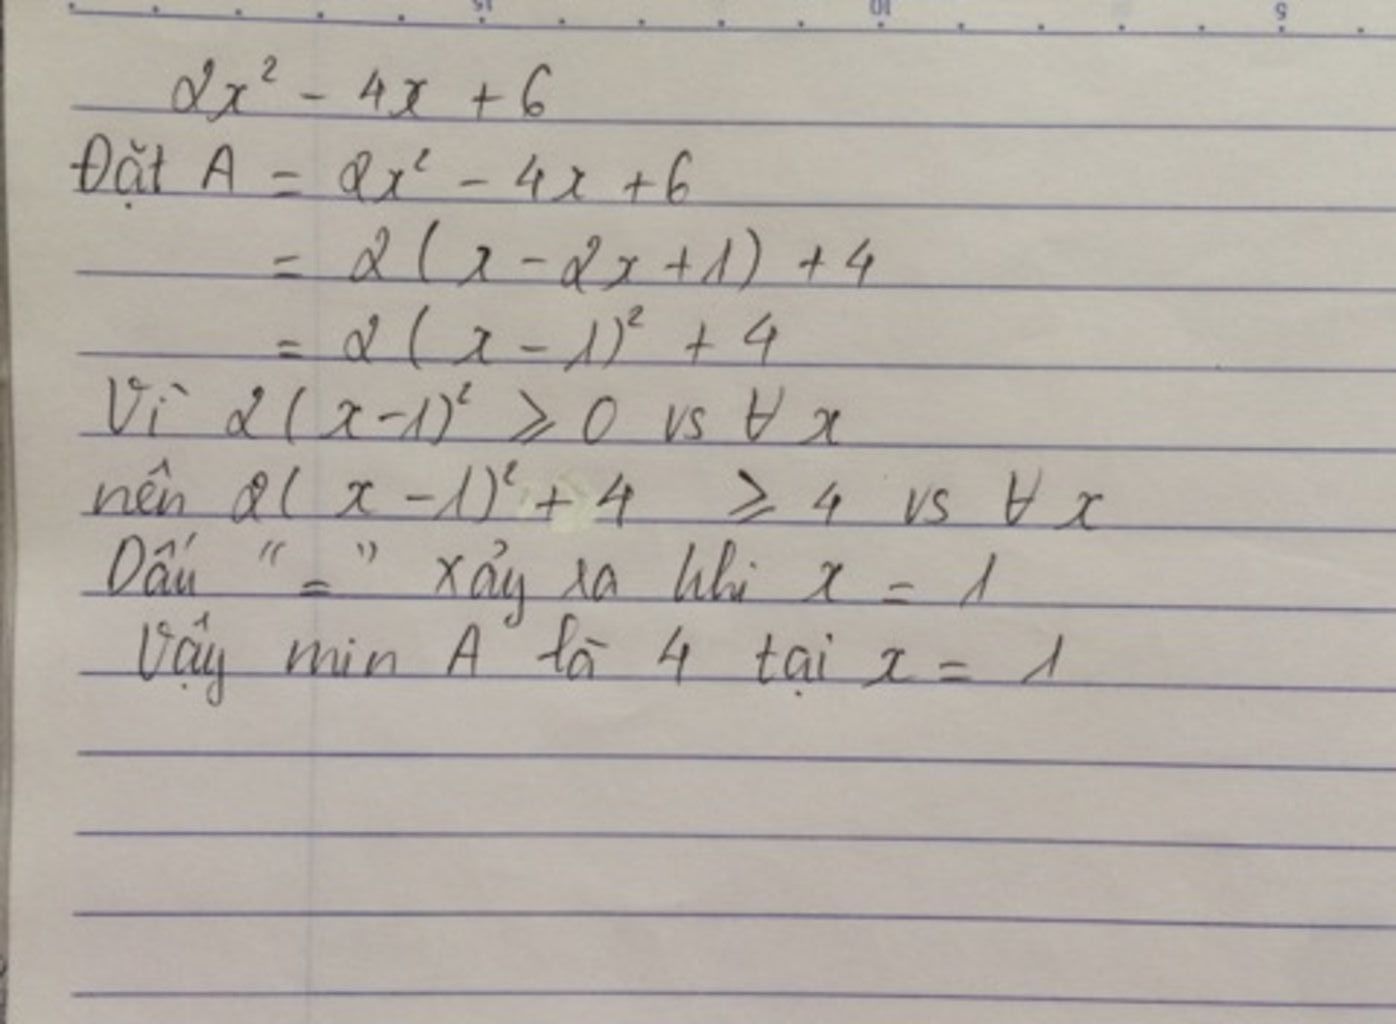 15 10 5
2x² - 4x + 6
Đặt A = 2x² - 4x + 6
= 2(x - 2x + 1) + 4
= 2(x - 1)² + 4
Vì 2(x-1)² ⩾ 0 vs ∀ x
nên 2(x-1)² + 4 ⩾ 4 vs ∀ x
Dấu "=" xảy ra khi x = 1
Vậy min A là 4 tại x = 1